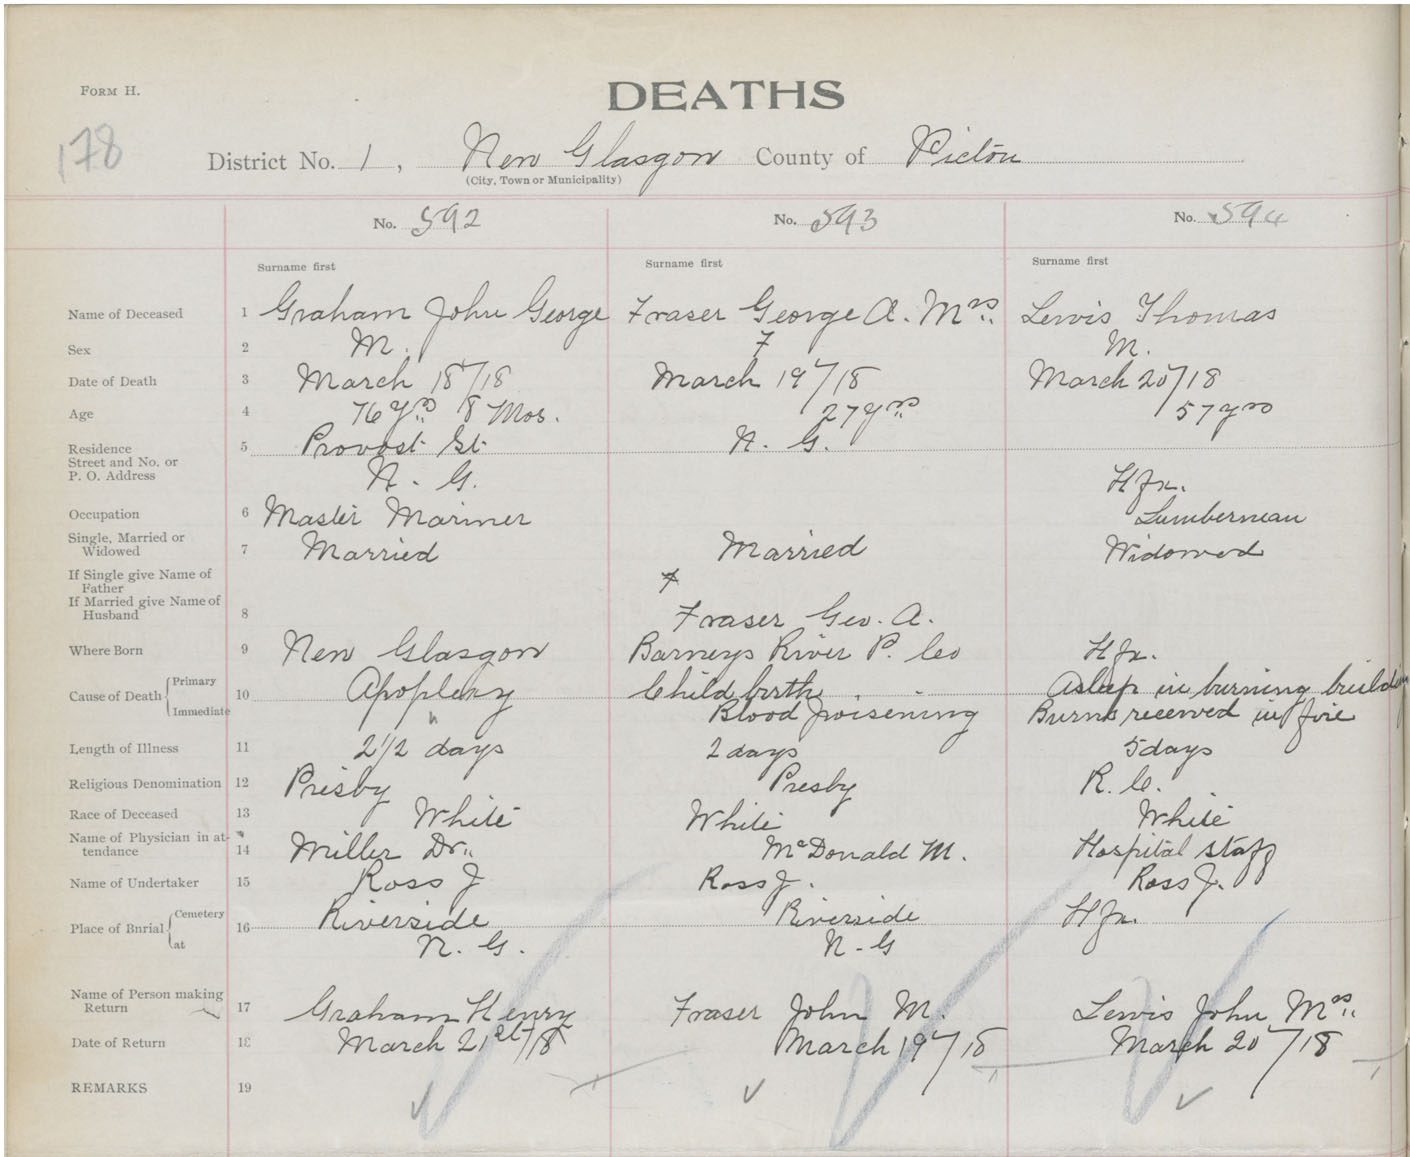 FORM H.
DEATHS
178
District No. 1, New Glasgow County of Pictou
(City, Town or Municipality)
No. 592 No. 593 No. 594
Surname first Surname first Surname first
Name of Deceased 1 Graham John George Fraser George A. Mrs. Lewis Thomas
Sex 2 M. F M.
Date of Death 3 March 18/18 March 19/18 March 20/18
Age 4 76 yrs 8 Mos. 27 yrs 57 yrs
Residence 5 Provost St N. G.
Street and No. or
P. O. Address N. G. Hfx.
Occupation 6 Master Mariner Lumberman
Single, Married or
Widowed 7 Married Married Widowed
If Single give Name of
Father
If Married give Name of
Husband 8 Fraser Geo. A.
Where Born 9 New Glasgow Barneys River P. Co Hfx.
Cause of Death Primary 10 Apoplexy Childbirth Asleep in burning building
Immediate " Blood poisening Burns received in fire
Length of Illness 11 2 1/2 days 2 days 5 days
Religious Denomination 12 Presby Presby R. C.
Race of Deceased 13 White White White
Name of Physician in at-
tendance 14 Miller Dr. McDonald M. Hospital staff
Name of Undertaker 15 Ross J Ross J. Ross J.
Place of Burial Cemetery 16 Riverside Riverside Hfx.
at N. G. N. G
Name of Person making
Return 17 Graham Henry Fraser John M. Lewis John Mrs.
Date of Return 18 March 21st/18 March 19/18 March 20/18
REMARKS 19